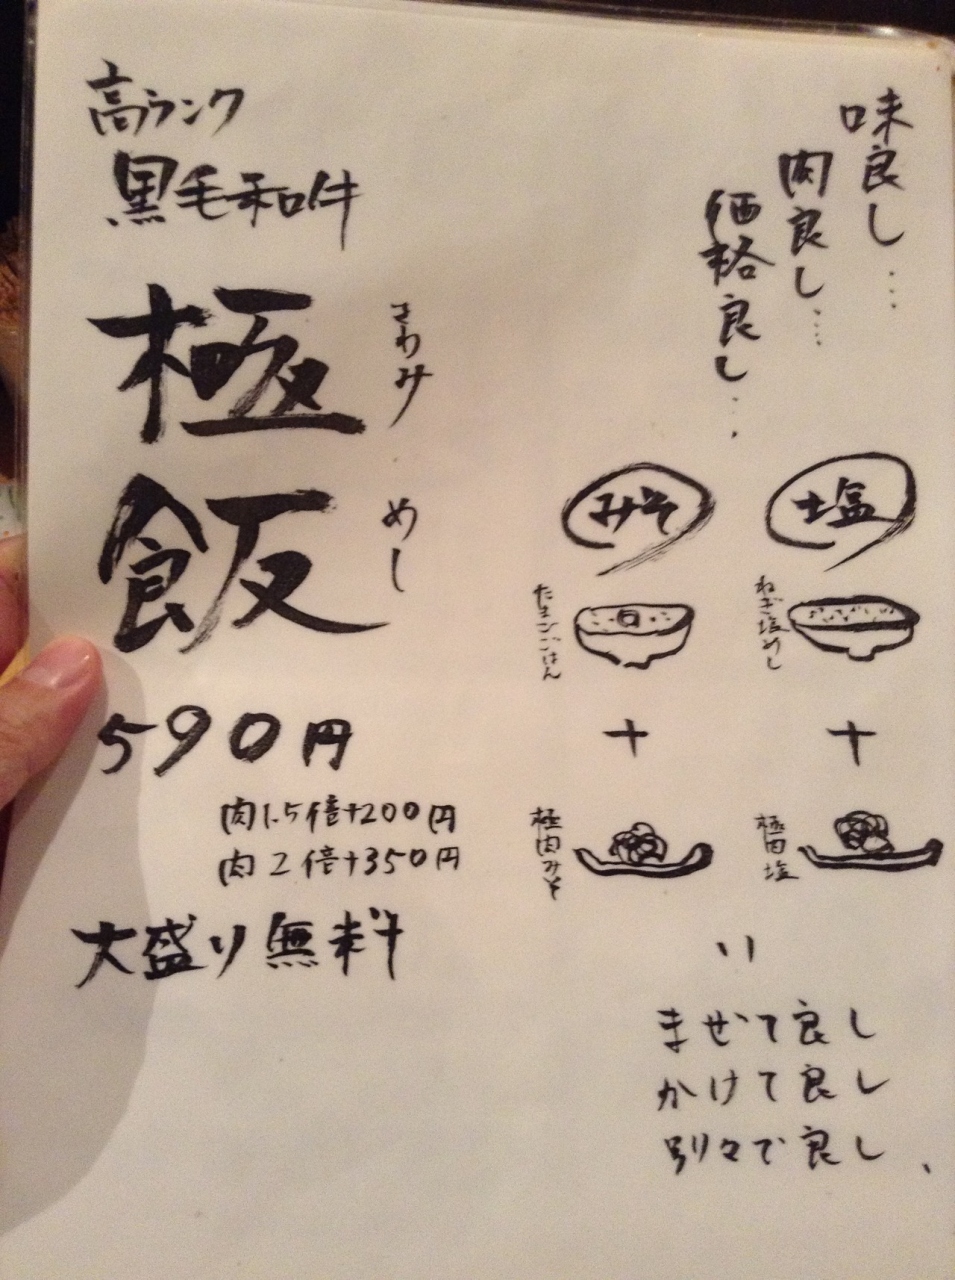 味良し…
肉良し…
価格良し…
高ランク
黒毛和牛
極飯
きわみ
めし
590円
肉1.5倍+200円
肉2倍+350円
大盛り無料
塩
ねぎ塩めし
+
極肉塩
みそ
たまごごはん
+
極肉みそ
まぜて良し
かけて良し
別々で良し、